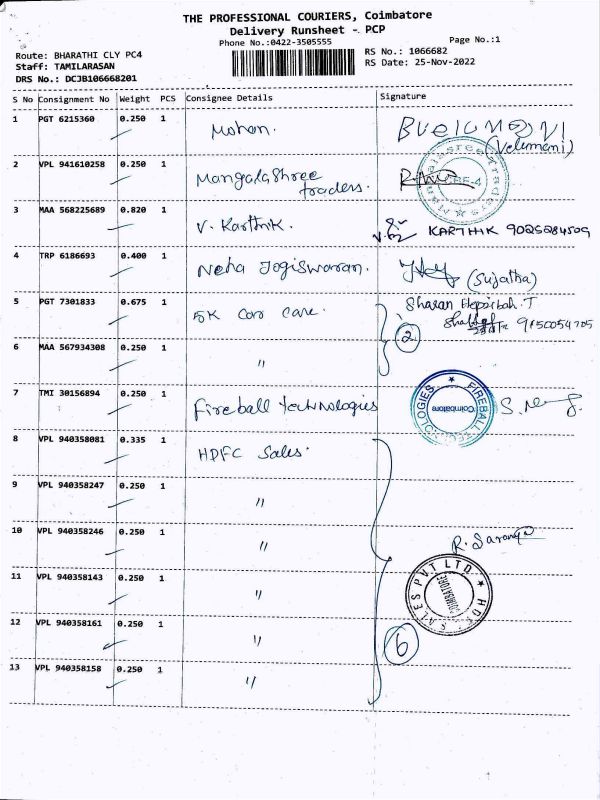 THE PROFESSIONAL COURIERS, Coimbatore
Delivery Runsheet - PCP
Phone No.:0422-3505555
Page No.:1
Route: BHARATHI CLY PC4
Staff: TAMILARASAN
DRS No.: DCJB106668201
RS No.: 1066682
RS Date: 25-Nov-2022
S No Consignment No Weight PCS Consignee Details Signature
1 PGT 6215360 0.250 1 Mohan.
(Velumani)
2 VPL 941610258 0.250 1 Mangalashree
traders.
3 MAA 568225689 0.820 1 V. Karthik. KARTHIK 9025284509
4 TRP 6186693 0.400 1 Neha Jogiswaran. (Sujatha)
5 PGT 7301833 0.675 1 5K Car Care. Sharan
2
6 MAA 567934308 0.250 1 "
7 TMI 30156894 0.250 1 Fireball technologies
FIREBALL TECHNOLOGIES
Coimbatore
8 VPL 940358081 0.335 1 HDFC Sales.
9 VPL 940358247 0.250 1 "
10 VPL 940358246 0.250 1 "
11 VPL 940358143 0.250 1 "
HDFC SALES PVT LTD
COIMBATORE
12 VPL 940358161 0.250 1 "
6
13 VPL 940358158 0.250 1 "